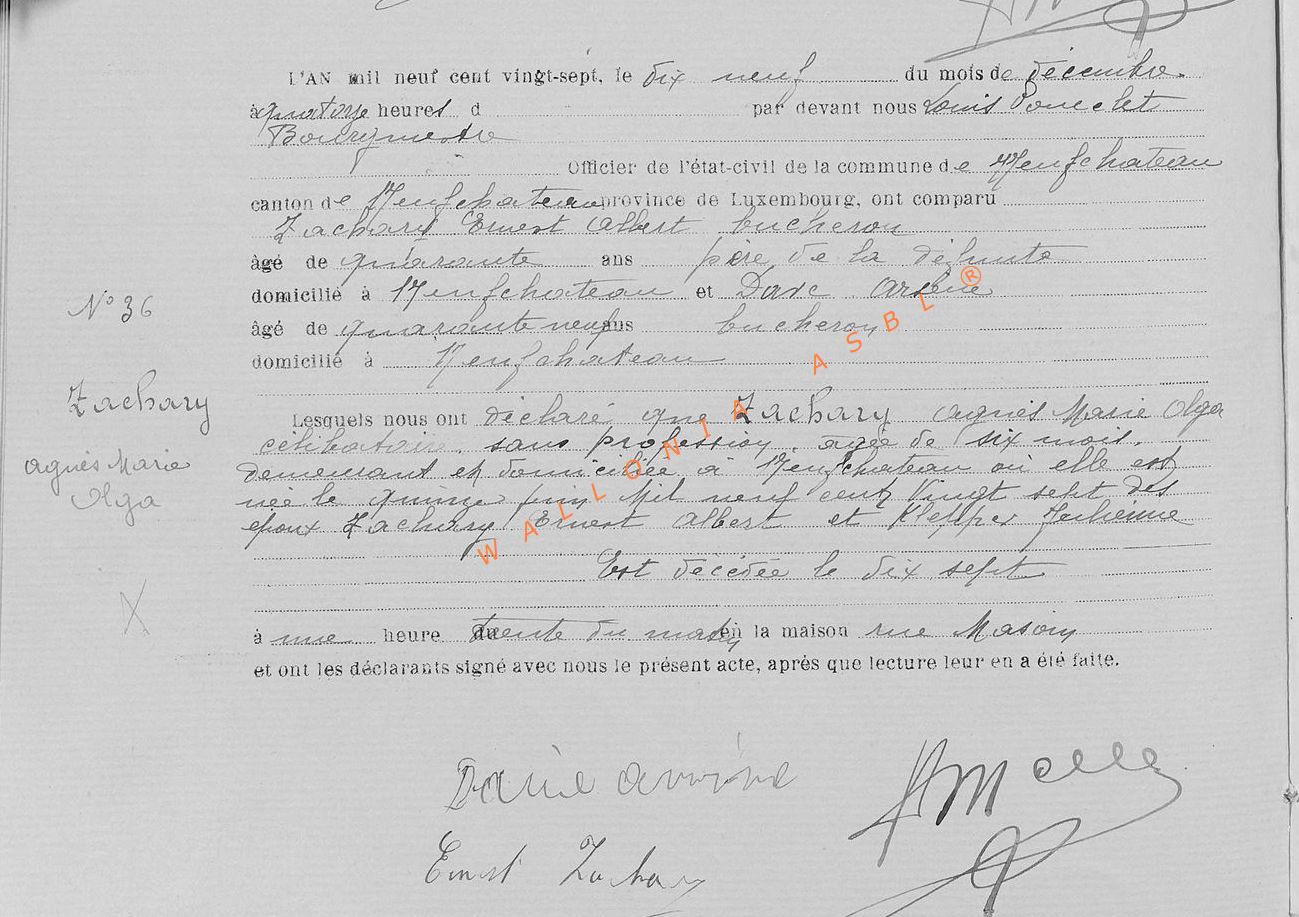 L'AN mil neuf cent vingt-sept, le dix neuf du mois de décembre.
à quatorze heures d par devant nous Louis Poncelet
Bourgmestre
Officier de l'état-civil de la commune de Neufchateau
canton de Neufchateau province de Luxembourg, ont comparu
Zachary Ernest Albert bucheron
âgé de quarante ans père de la défunte
domicilié à Neufchateau et Arsène
N° 36
âgé de quarante neuf ans bucheron
domicilié à Neufchateau
Zachary
Lesquels nous ont déclaré que Zachary Agnès Marie Olga
célibataire, sans profession, agée de six mois,
Agnès Marie
demeurant et domiciliée à Neufchateau où elle est
Olga
née le quinze juin Mil neuf cent Vingt sept des
époux Zachary Ernest Albert et Julienne
Est décédée le dix sept
X
à une heure trente du matin en la maison rue
et ont les déclarants signé avec nous le présent acte, après que lecture leur en a été faite.
Ernest Zachary
WALLONIA ASBL ®